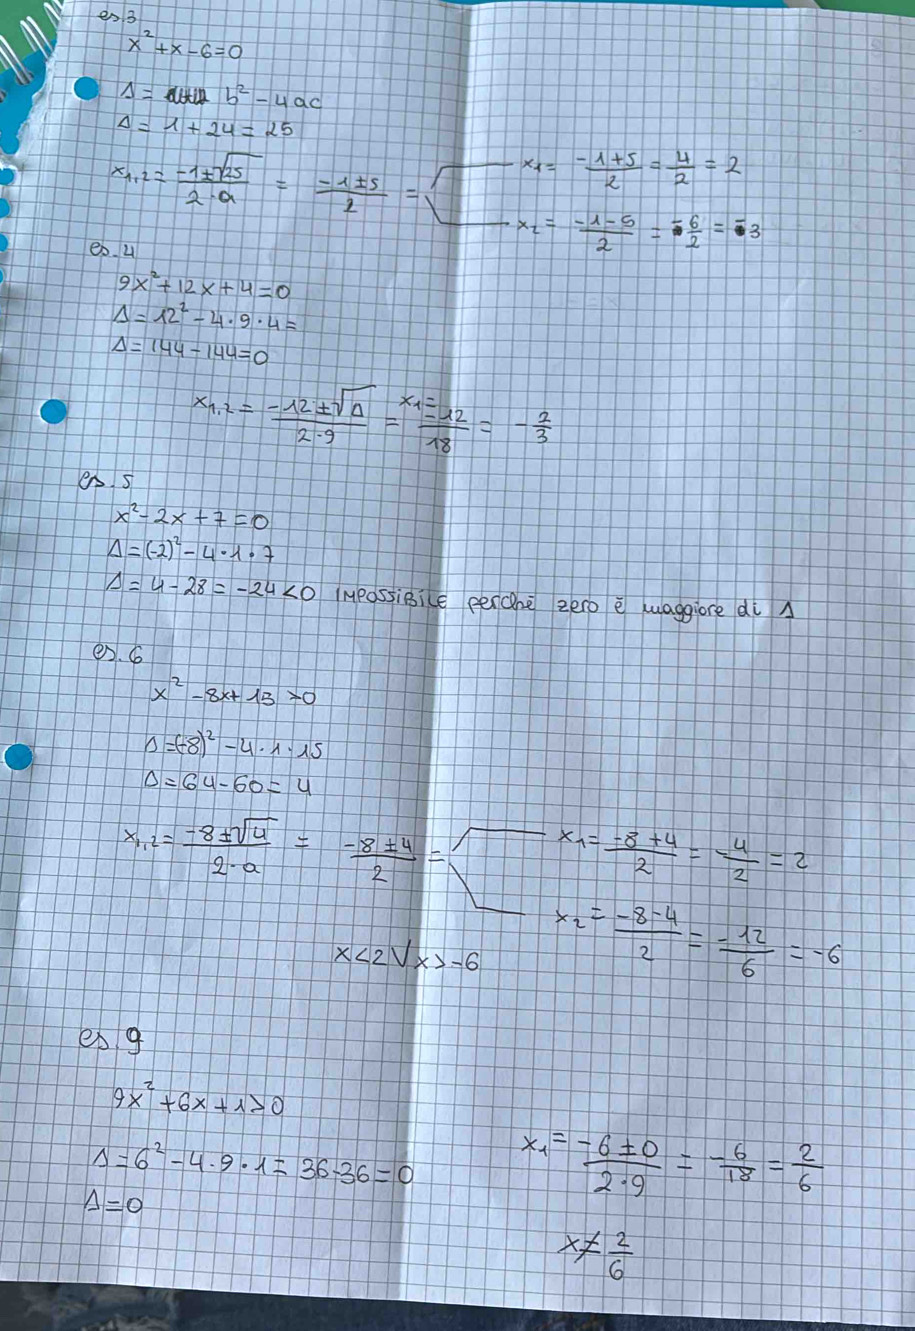 es 3
x² + x - 6 = 0
Δ = b² - 4ac
Δ = 1 + 24 = 25
x₁,₂ = (-1 ± √25)/(2·a) = (-1 ± 5)/2 =
x₁ = (-1+5)/2 = 4/2 = 2
x₂ = (-1-5)/2 = -6/2 = -3
es. 4
9x² + 12x + 4 = 0
Δ = 12² - 4·9·4 =
Δ = 144 - 144 = 0
x₁,₂ = (-12 ± √Δ)/(2·9) = x₁ = -12/18 = -2/3
es. 5
x² - 2x + 7 = 0
Δ = (-2)² - 4·1·7
Δ = 4 - 28 = -24 < 0 IMPOSSIBILE perché zero è maggiore di Δ
es. 6
x² - 8x + 15 > 0
Δ = (-8)² - 4·1·15
Δ = 64 - 60 = 4
x₁,₂ = (-8 ± √4)/(2·a) = (-8 ± 4)/2 =
x₁ = (-8+4)/2 = -4/2 = 2
x₂ = (-8-4)/2 = -12/6 = -6
x < 2 ∨ x > -6
es 9
9x² + 6x + 1 > 0
Δ = 6² - 4·9·1 = 36 - 36 = 0
Δ = 0
x₁ = (-6 ± 0)/(2·9) = -6/18 = 2/6
x ≠ 2/6